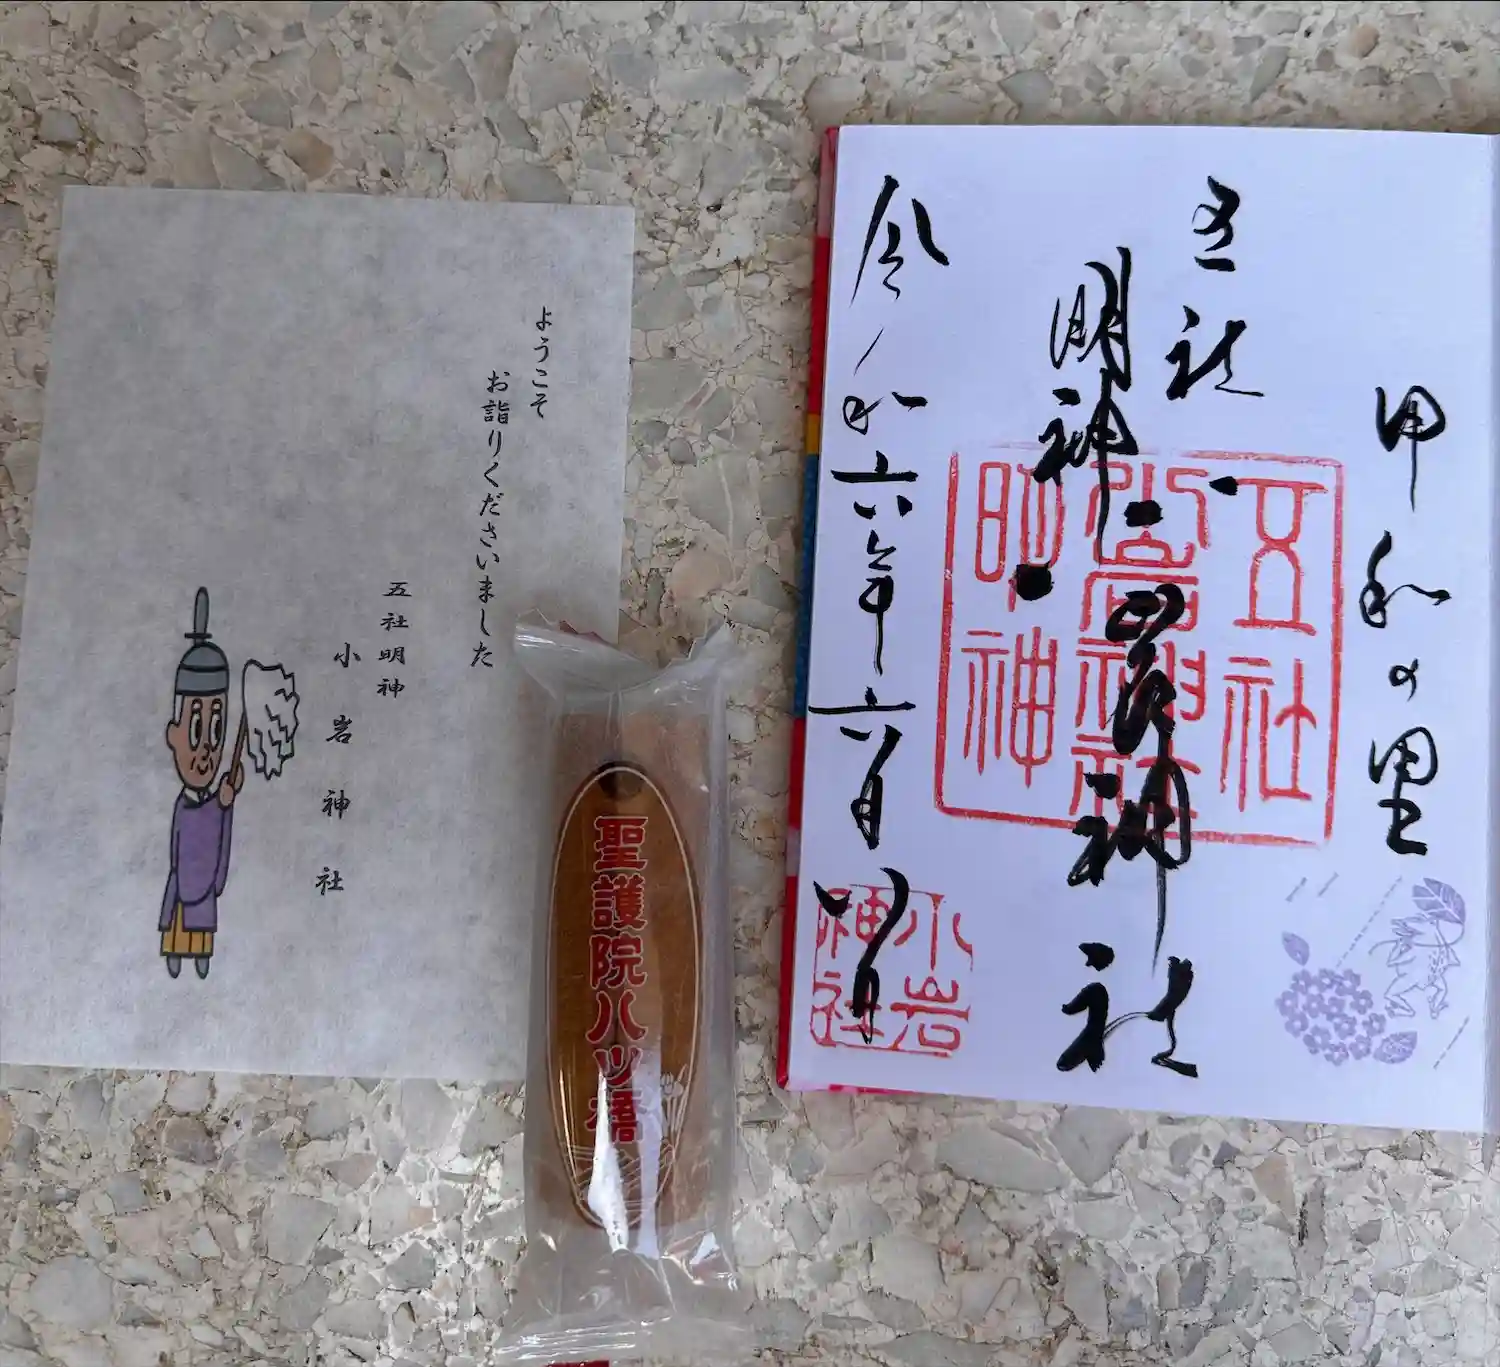 ようこそ
お詣りくださいました
五社明神
小岩神社
聖護院八ツ橋
甲和の里
五社
明神
小岩神社
令和六年六月八日
五社
小岩神社
明神
小岩
神社